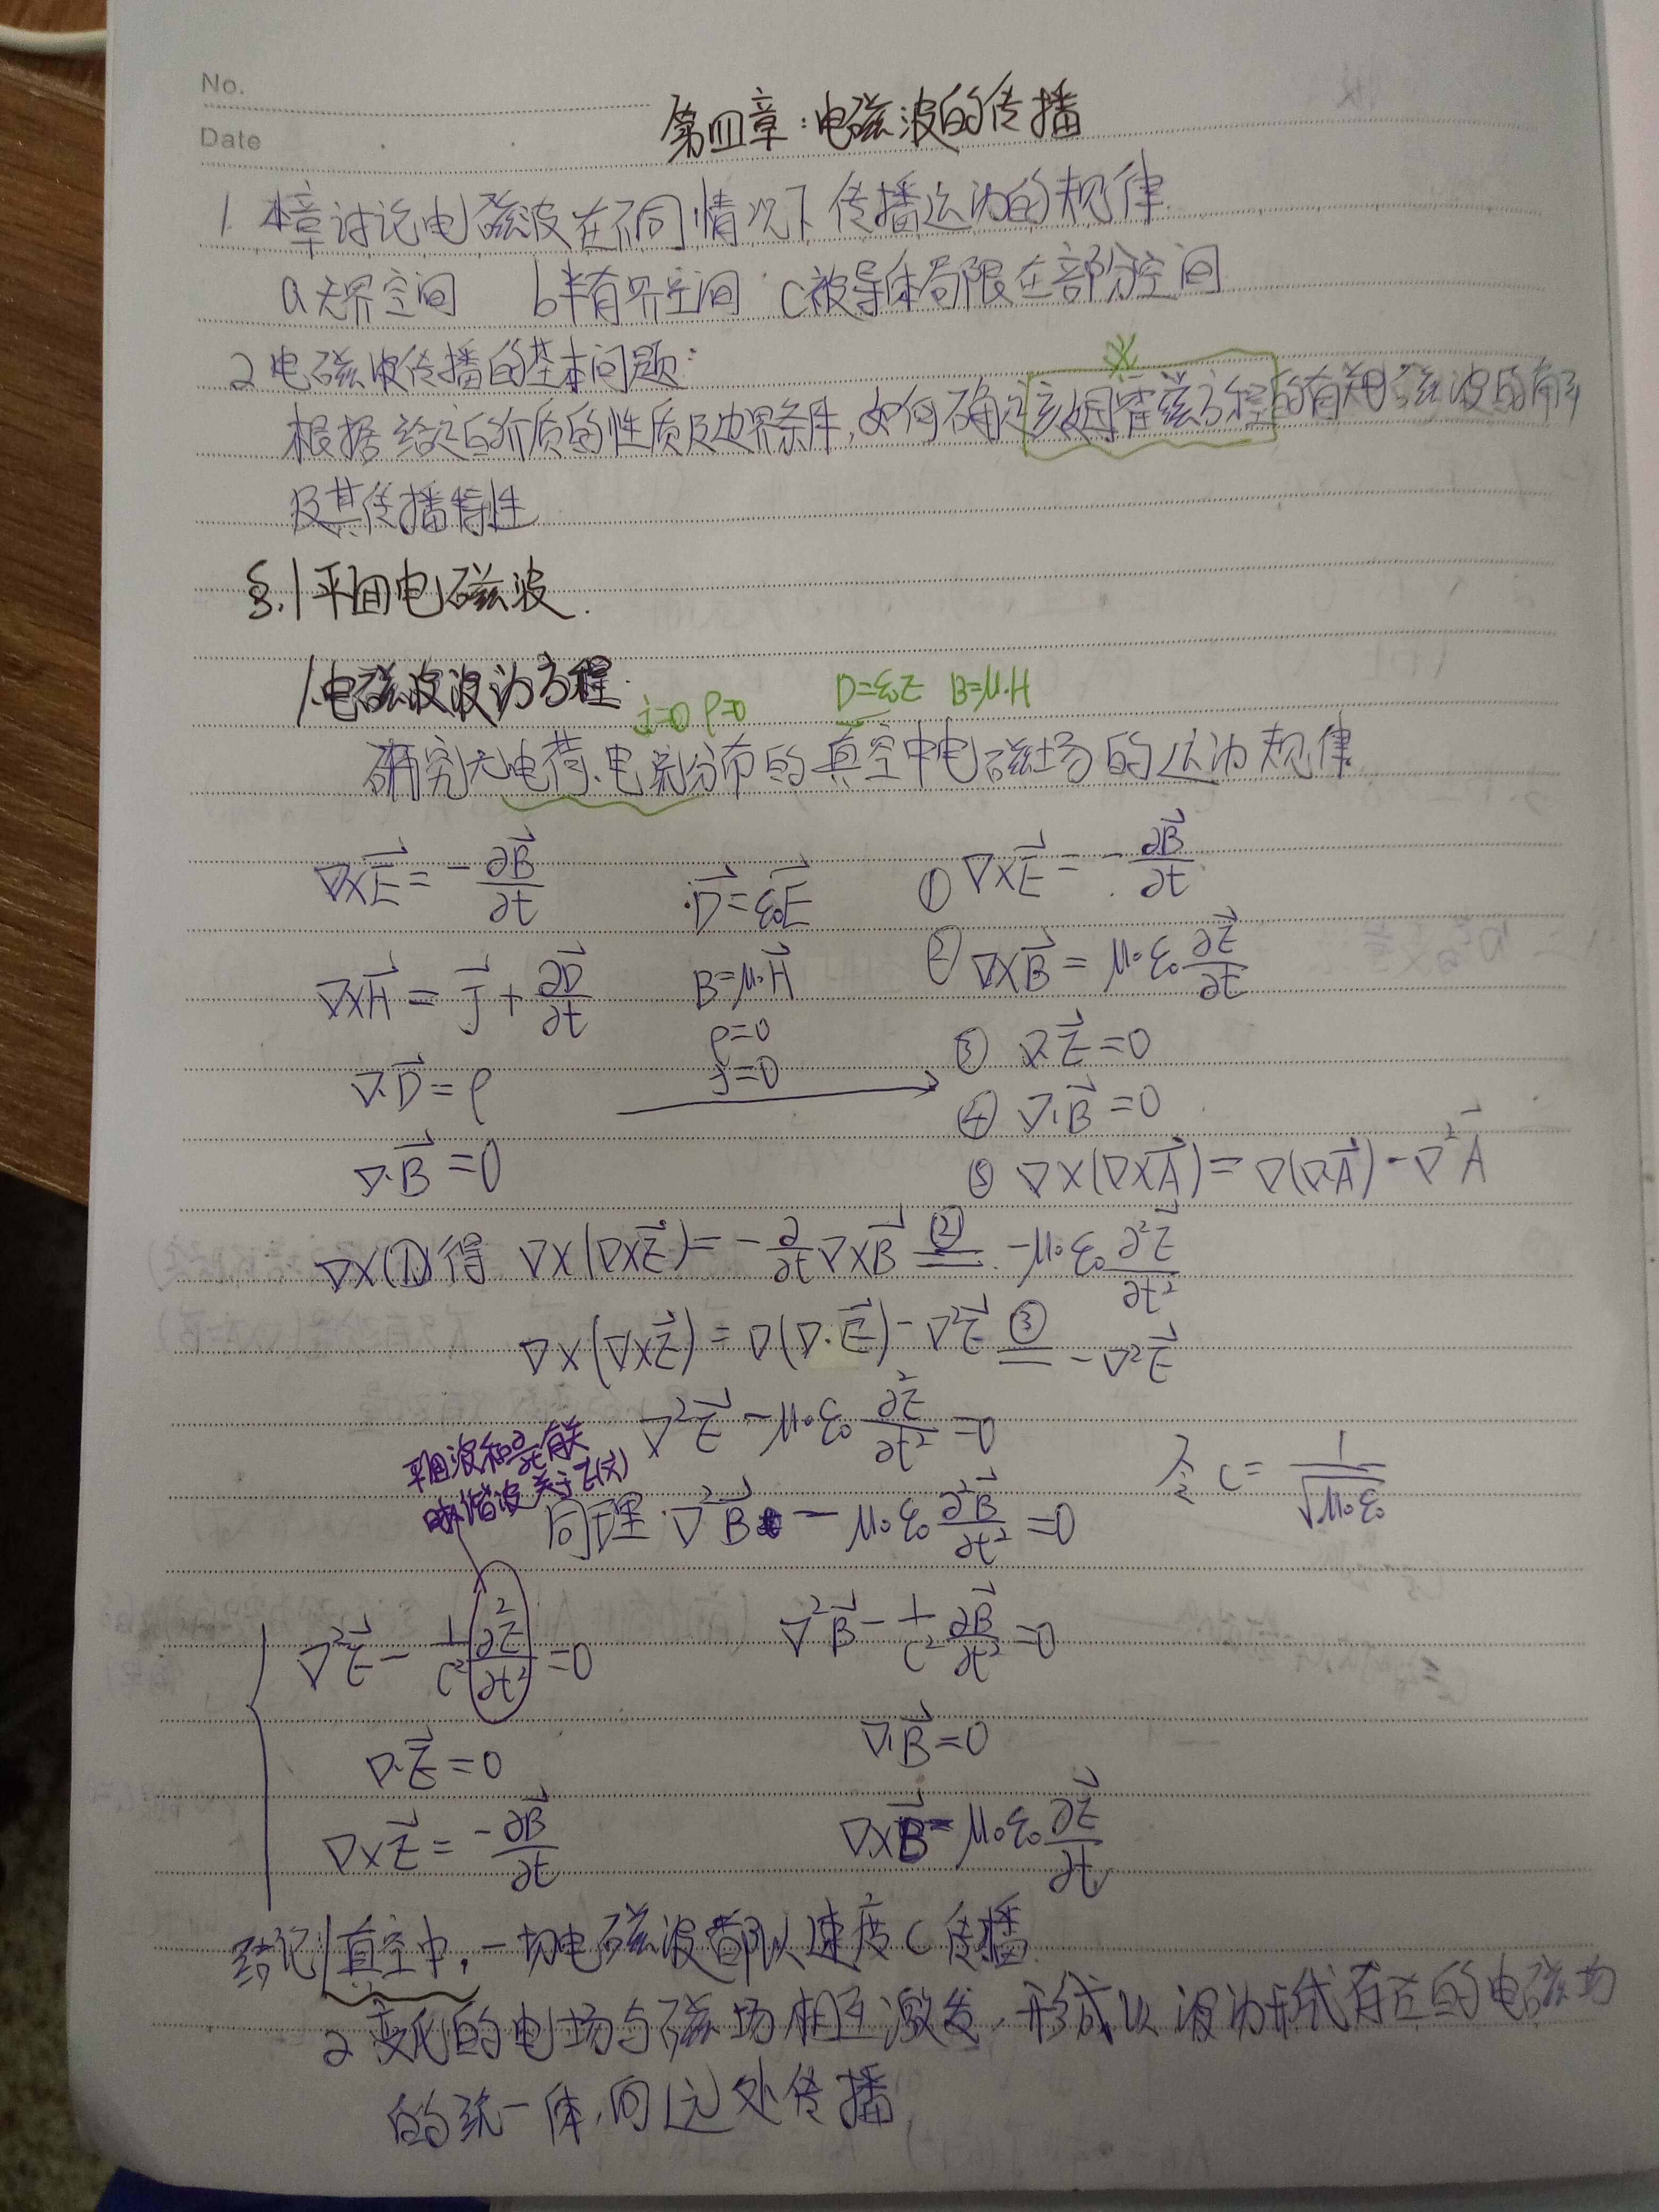 No.
Date
第四章:电磁波的传播
1. 本章讨论电磁波在不同情况下传播运动的规律.
a 无界空间 b 半有界空间 c 被导体局限在部分空间
2 电磁波传播的基本问题:
根据给定的介质的性质及边界条件,如何确定亥姆霍兹方程的有关电磁波的解
及其传播特性
§.1 平面电磁波.
1.电磁波波动方程.
j=0 ρ=0 D=ε₀E B=μ₀H
研究无电荷、电流分布的真空中电磁场的运动规律
∇×E⃗ = -∂B⃗/∂t D⃗=ε₀E⃗ ① ∇×E⃗ = -∂B⃗/∂t
∇×H⃗ = J⃗ + ∂D⃗/∂t B=μ₀H⃗ ② ∇×B⃗ = μ₀ε₀ ∂E⃗/∂t
ρ=0
∇·D⃗ = ρ j=0 ③ ∇·E⃗=0
④ ∇·B⃗=0
∇·B⃗ = 0 ⑤ ∇×(∇×A⃗) = ∇(∇·A⃗) - ∇²A⃗
∇×(1)得 ∇×(∇×E⃗) = -∂/∂t ∇×B⃗ ② -μ₀ε₀ ∂²E⃗/∂t²
∇×(∇×E⃗) = ∇(∇·E⃗) - ∇²E⃗ ③ -∇²E⃗
∇²E⃗ - μ₀ε₀ ∂²E⃗/∂t² = 0
平面波和∂/∂t有关
时谐波关于E(x⃗)
令 c = 1/√μ₀ε₀
同理 ∇²B⃗ - μ₀ε₀ ∂²B⃗/∂t² = 0
∇²E⃗ - 1/c² ∂²E⃗/∂t² = 0 ∇²B⃗ - 1/c² ∂B⃗/∂t² = 0
∇·E⃗ = 0 ∇·B⃗ = 0
∇×E⃗ = -∂B⃗/∂t ∇×B⃗ = μ₀ε₀ ∂E⃗/∂t
结论 1 真空中,一切电磁波都以速度 c 传播.
2 变化的电场与磁场相互激发,形成以波动形式存在的电磁场
的统一体,向远处传播